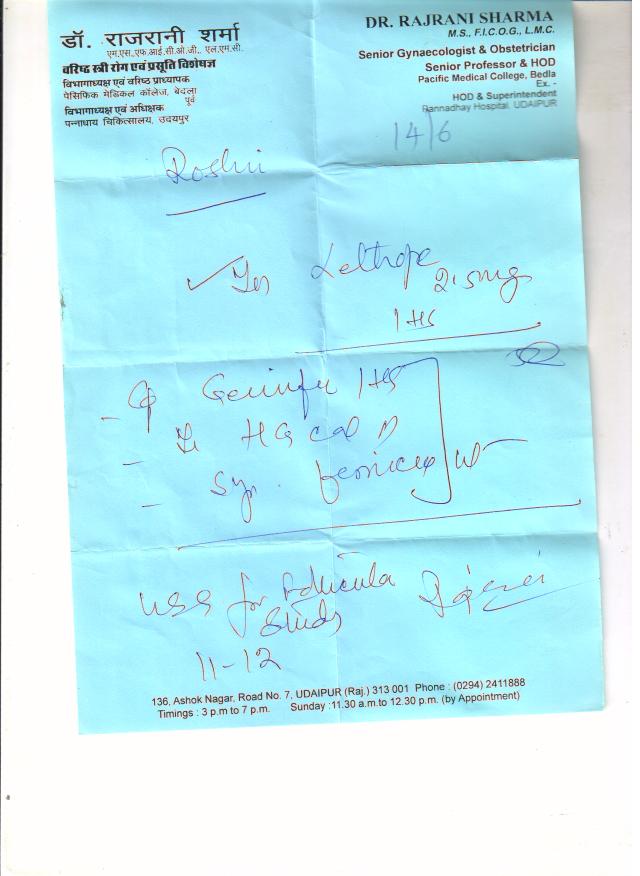 डॉ. राजरानी शर्मा
एम.एस.,एफ.आई.सी.ओ.जी., एल.एम.सी.
वरिष्ठ स्त्री रोग एवं प्रसूति विशेषज्ञ
विभागाध्यक्ष एवं वरिष्ठ प्राध्यापक
पेसिफिक मेडिकल कॉलेज, बेदला
पूर्व
विभागाध्यक्ष एवं अधिक्षक
पन्नाधाय चिकित्सालय, उदयपुर
DR. RAJRANI SHARMA
M.S., F.I.C.O.G., L.M.C.
Senior Gynaecologist & Obstetrician
Senior Professor & HOD
Pacific Medical College, Bedla
Ex. -
HOD & Superintendent
Pannadhay Hospital, UDAIPUR
14/6
Roshni
2.5mg
1 HS
1 HS
Syp.
USG for
Study
11-12
136, Ashok Nagar, Road No. 7, UDAIPUR (Raj.) 313 001 Phone : (0294) 2411888
Timings : 3 p.m to 7 p.m. Sunday :11.30 a.m.to 12.30 p.m. (by Appointment)